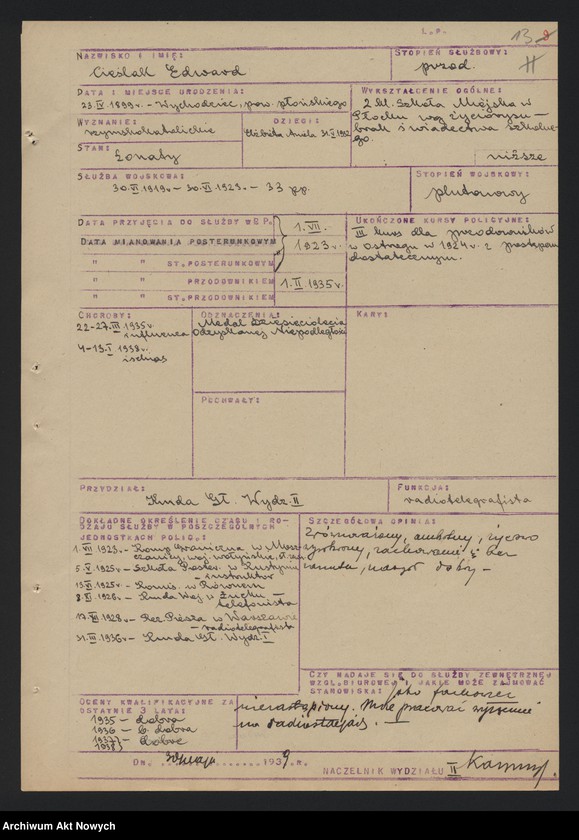 L.P.
13
NAZWISKO I IMIĘ:
Cieślak Edward
STOPIEŃ SŁUŻBOWY:
przod.
DATA I MIEJSCE URODZENIA:
23.IV.1899r. - Wychodziec, pow. płońskiego
WYKSZTAŁCENIE OGÓLNE:
2 kl. Szkoła Miejska w
Płocku wg życiorysu -
brak świadectwa szkolne-
go.
niższe
WYZNANIE:
rzymskokatolickie
DZIECI:
Elżbieta Aniela
STAN:
żonaty
SŁUŻBA WOJSKOWA:
30.VI.1919r - 30.VI.1923. - 33 pp.
STOPIEŃ WOJSKOWY:
plutonowy
DATA PRZYJĘCIA DO SŁUŻBY W P.P.
1.VII.
1923r.
DATA MIANOWANIA POSTERUNKOWYM
" " ST.POSTERUNKOWYM
" " PRZODOWNIKIEM
1.II 1935r.
" " ST.PRZODOWNIKIEM
UKOŃCZONE KURSY POLICYJNE:
III kurs dla przodowników
w Ostrogu w 1924r. z postępem
dostatecznym.
CHOROBY:
22-27.III.1935r.
influenca
4-13.I.1938r.
ischias
ODZNACZENIA:
Medal Dziesięciolecia
Odzyskanej Niepodległości
KARY:
POCHWAŁY:
PRZYDZIAŁ:
Kmda Gł. Wydz. II
FUNKCJA:
radiotelegrafista
DOKŁADNE OKREŚLENIE CZASU I RO-
DZAJU SŁUŻBY W POSZCZEGÓLNYCH
JEDNOSTKACH POLIC.:
1.VII 1923. - Komp. Graniczna w
5.V.1925r - Szkoła Poster. w
instruktor
1925r. - Komis. w Równem
1926r. - Kmda Woj. w Łucku -
telefonista
1928r. - Rez. Piesza w Warszawie
- radiotelegrafista
31.III.1936r - Kmda Gł. Wydz. I
SZCZEGÓŁOWA OPINIA:
Zrównoważony, ambitny,
zachowanie się bez
zarzutu, nadzór dobry -
CZY NADAJE SIĘ DO SŁUŻBY ZEWNĘTRZNEJ
WZGL.BIUROWEJ I JAKIE MOŻE ZAJMOWAĆ
STANOWISKA:
Jako fachowiec
niezastąpiony. Może pracować wyłącznie
na radiostacjach.
OCENY KWALIFIKACYJNE ZA
OSTATNIE 3 LATA:
1935 - dobra
1936 - b. dobra
1937
1938 - dobre
DN. 30 maja 1939.R.
NACZELNIK WYDZIAŁU II
Archiwum Akt Nowych